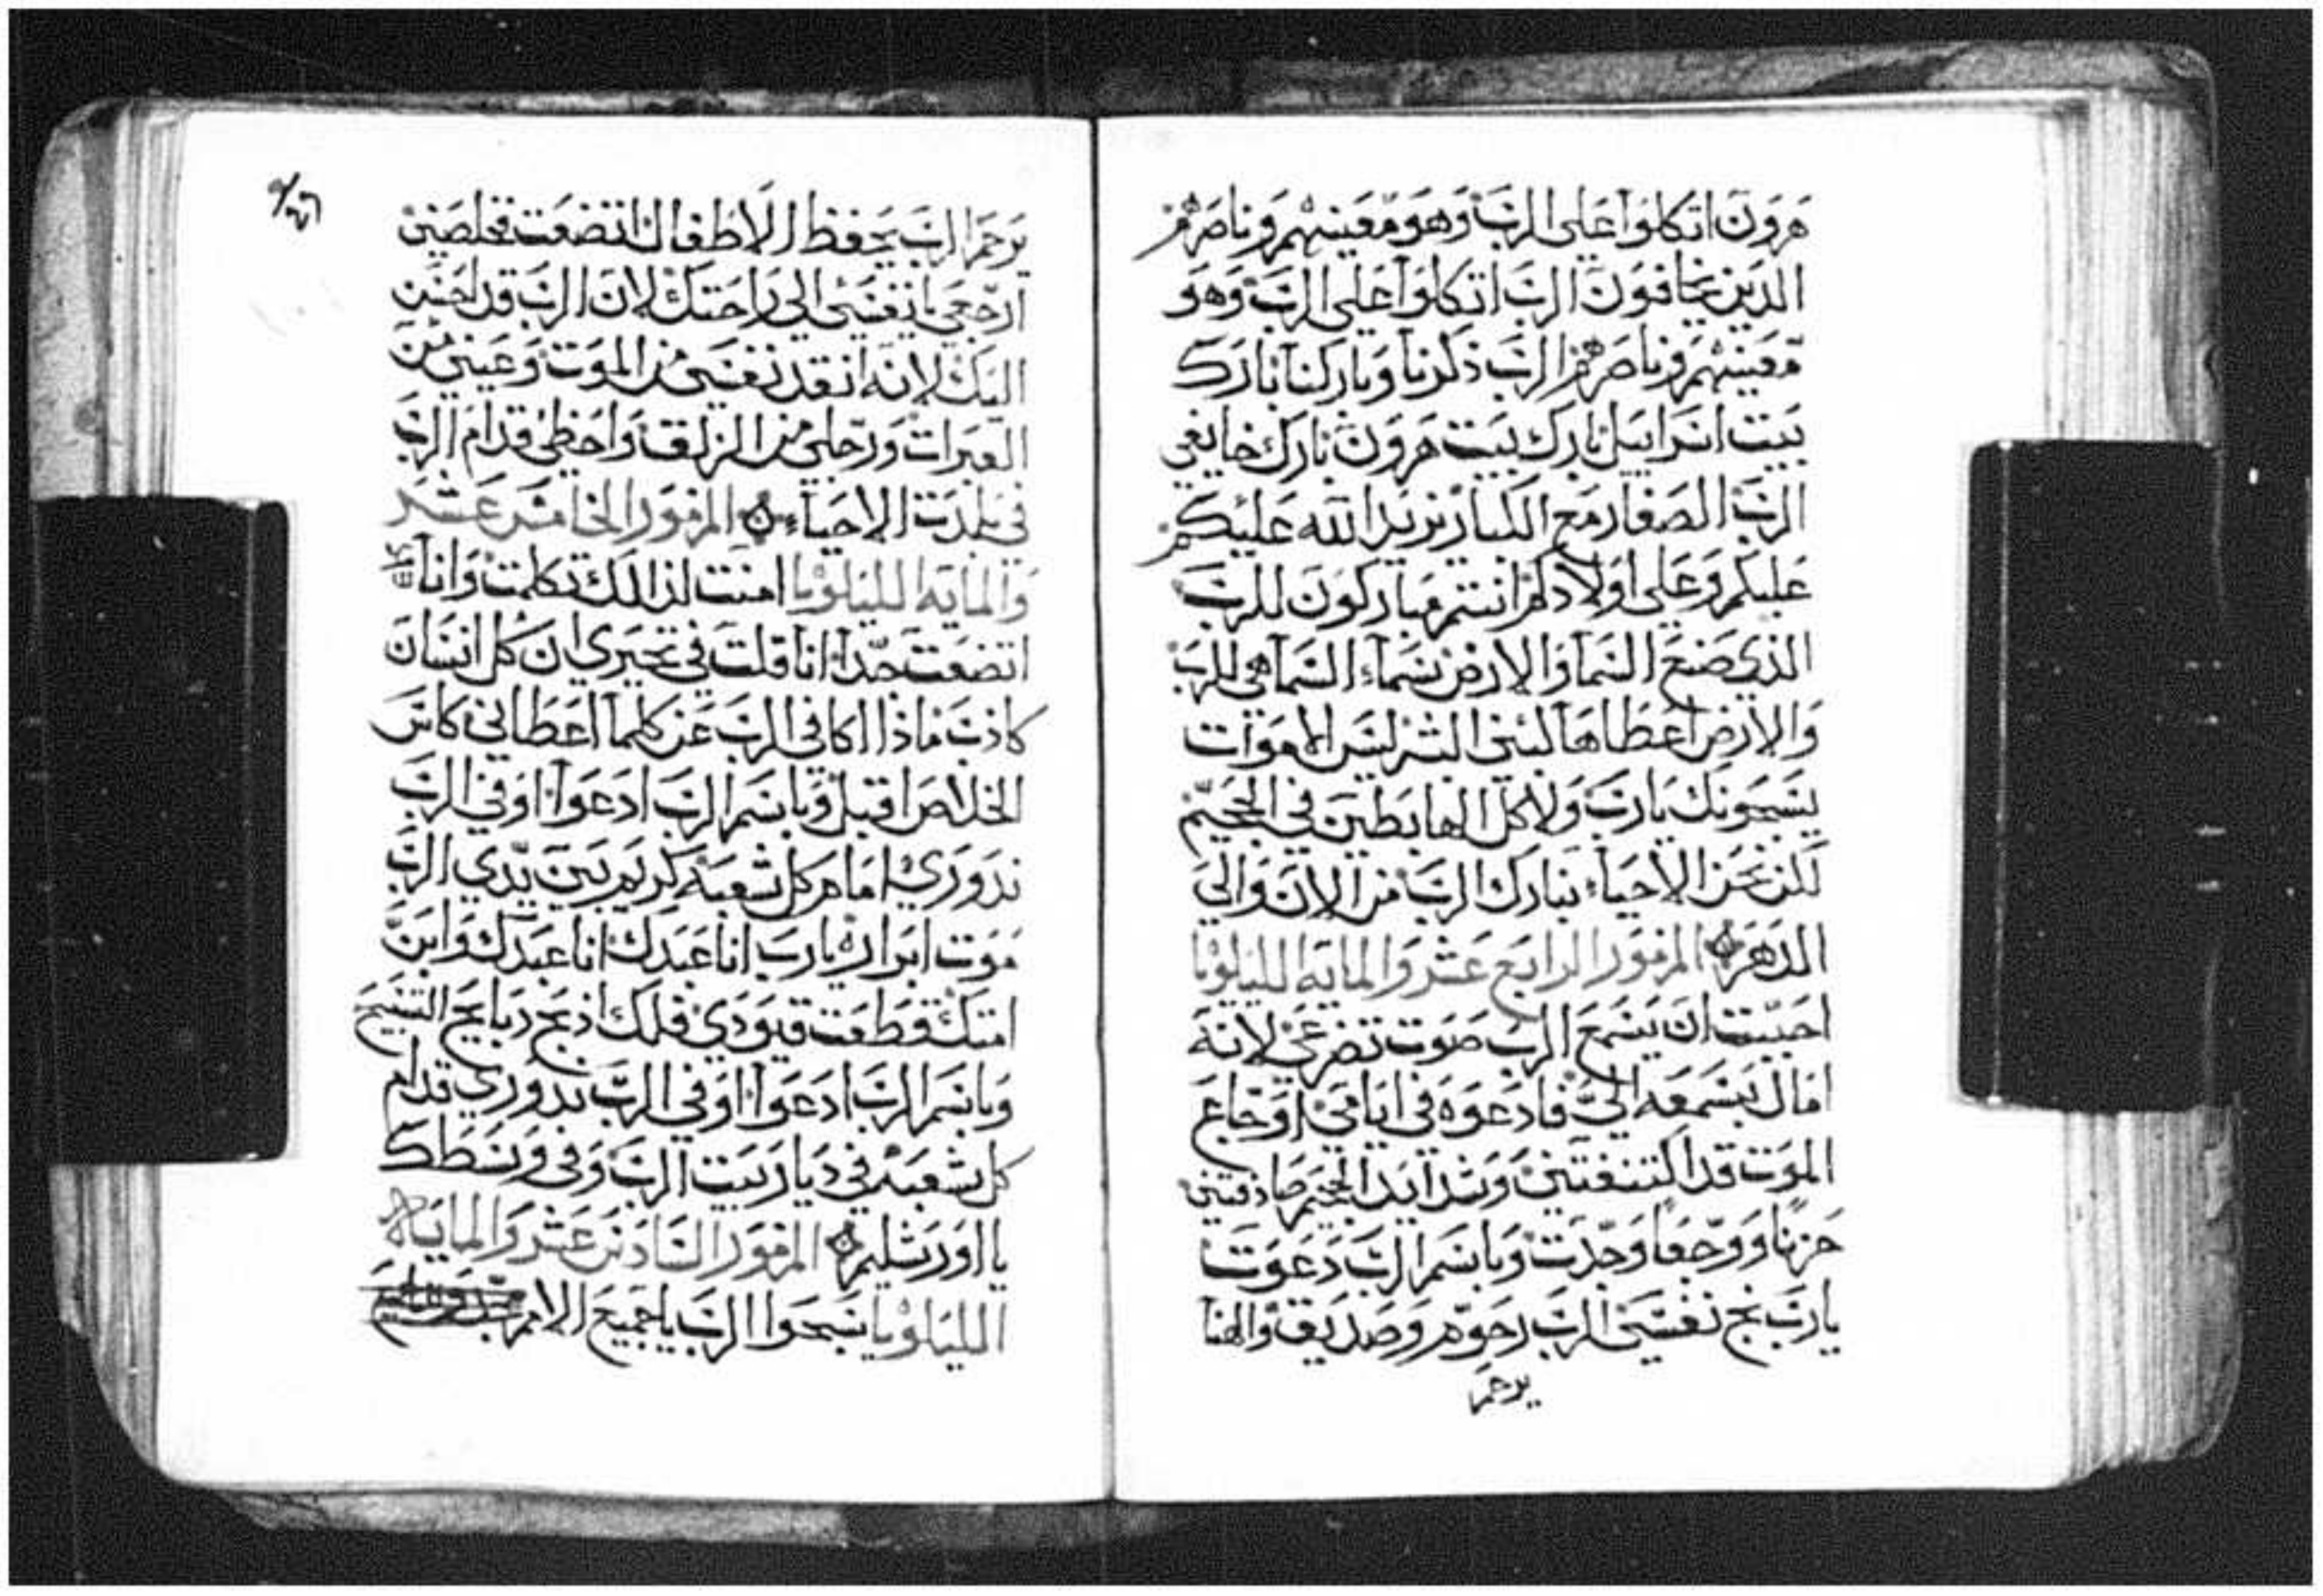 هرون اتكلوا على الرب وهو معينهم وناصرهم
الذين يخافون الرب اتكلوا على الرب وهو
معينهم وناصرهم الرب ذكرنا وباركنا بارك
بيت اسراييل بارك بيت هرون بارك خايفي
الرب الصغار مع الكبار يزيد الله عليكم
عليكم وعلى اولادكم انتم مباركون للرب
الذي صنع السما والارض سماء السما هي للرب
والارض اعطاها لبني البشر ليس الاموات
يسبحونك يارب ولا كل الهابطين في الجحيم
لكن نحن الاحياء نبارك الرب من الان والى
الدهر المزمور الرابع عشر والمايه الليلويا
احببت ان يسمع الرب صوت تضرعي لانه
امال بسمعه الي فادعوه في ايامي اوجاع
الموت قد اكتنفتني وشدايد الجحيم صادفتني
حزنا ووجعا وجدت وباسم الرب دعوت
يارب نج نفسي الرب رحوم وصديق والهنا
يرحم
يرحم الرب يحفظ الاطفال اتضعت فخلصني
ارجعي يا نفسي الي راحتك لان الرب قد احسن
اليك لانه انقد نفسي من الموت وعيني من
العبرات ورجلي من الزلق واحظي قدام الرب
في بلدت الاحياء المزمور الخامس عشر
والمايه الليلويا امنت لذالك تكلمت وانا
اتضعت جدا انا قلت في تحيري ان كل انسان
كاذب ماذا اكافي الرب عن كلما اعطاني كاس
الخلاص اقبل وباسم الرب ادعوا اوفي الرب
ندوري امام كل شعبه كريم بين يدي الرب
موت ابراره يارب انا عبدك انا عبدك وابن
امتك قطعت قيودي فلك اذبح دبايح التسبيح
وباسم الرب ادعوا اوفي الرب ندوري قدام
كل شعبه في ديار بيت الرب وفي وسطك
يا اورشليم المزمور السادس عشر والمايه
الليلويا سبحوا الرب يا جميع الامم